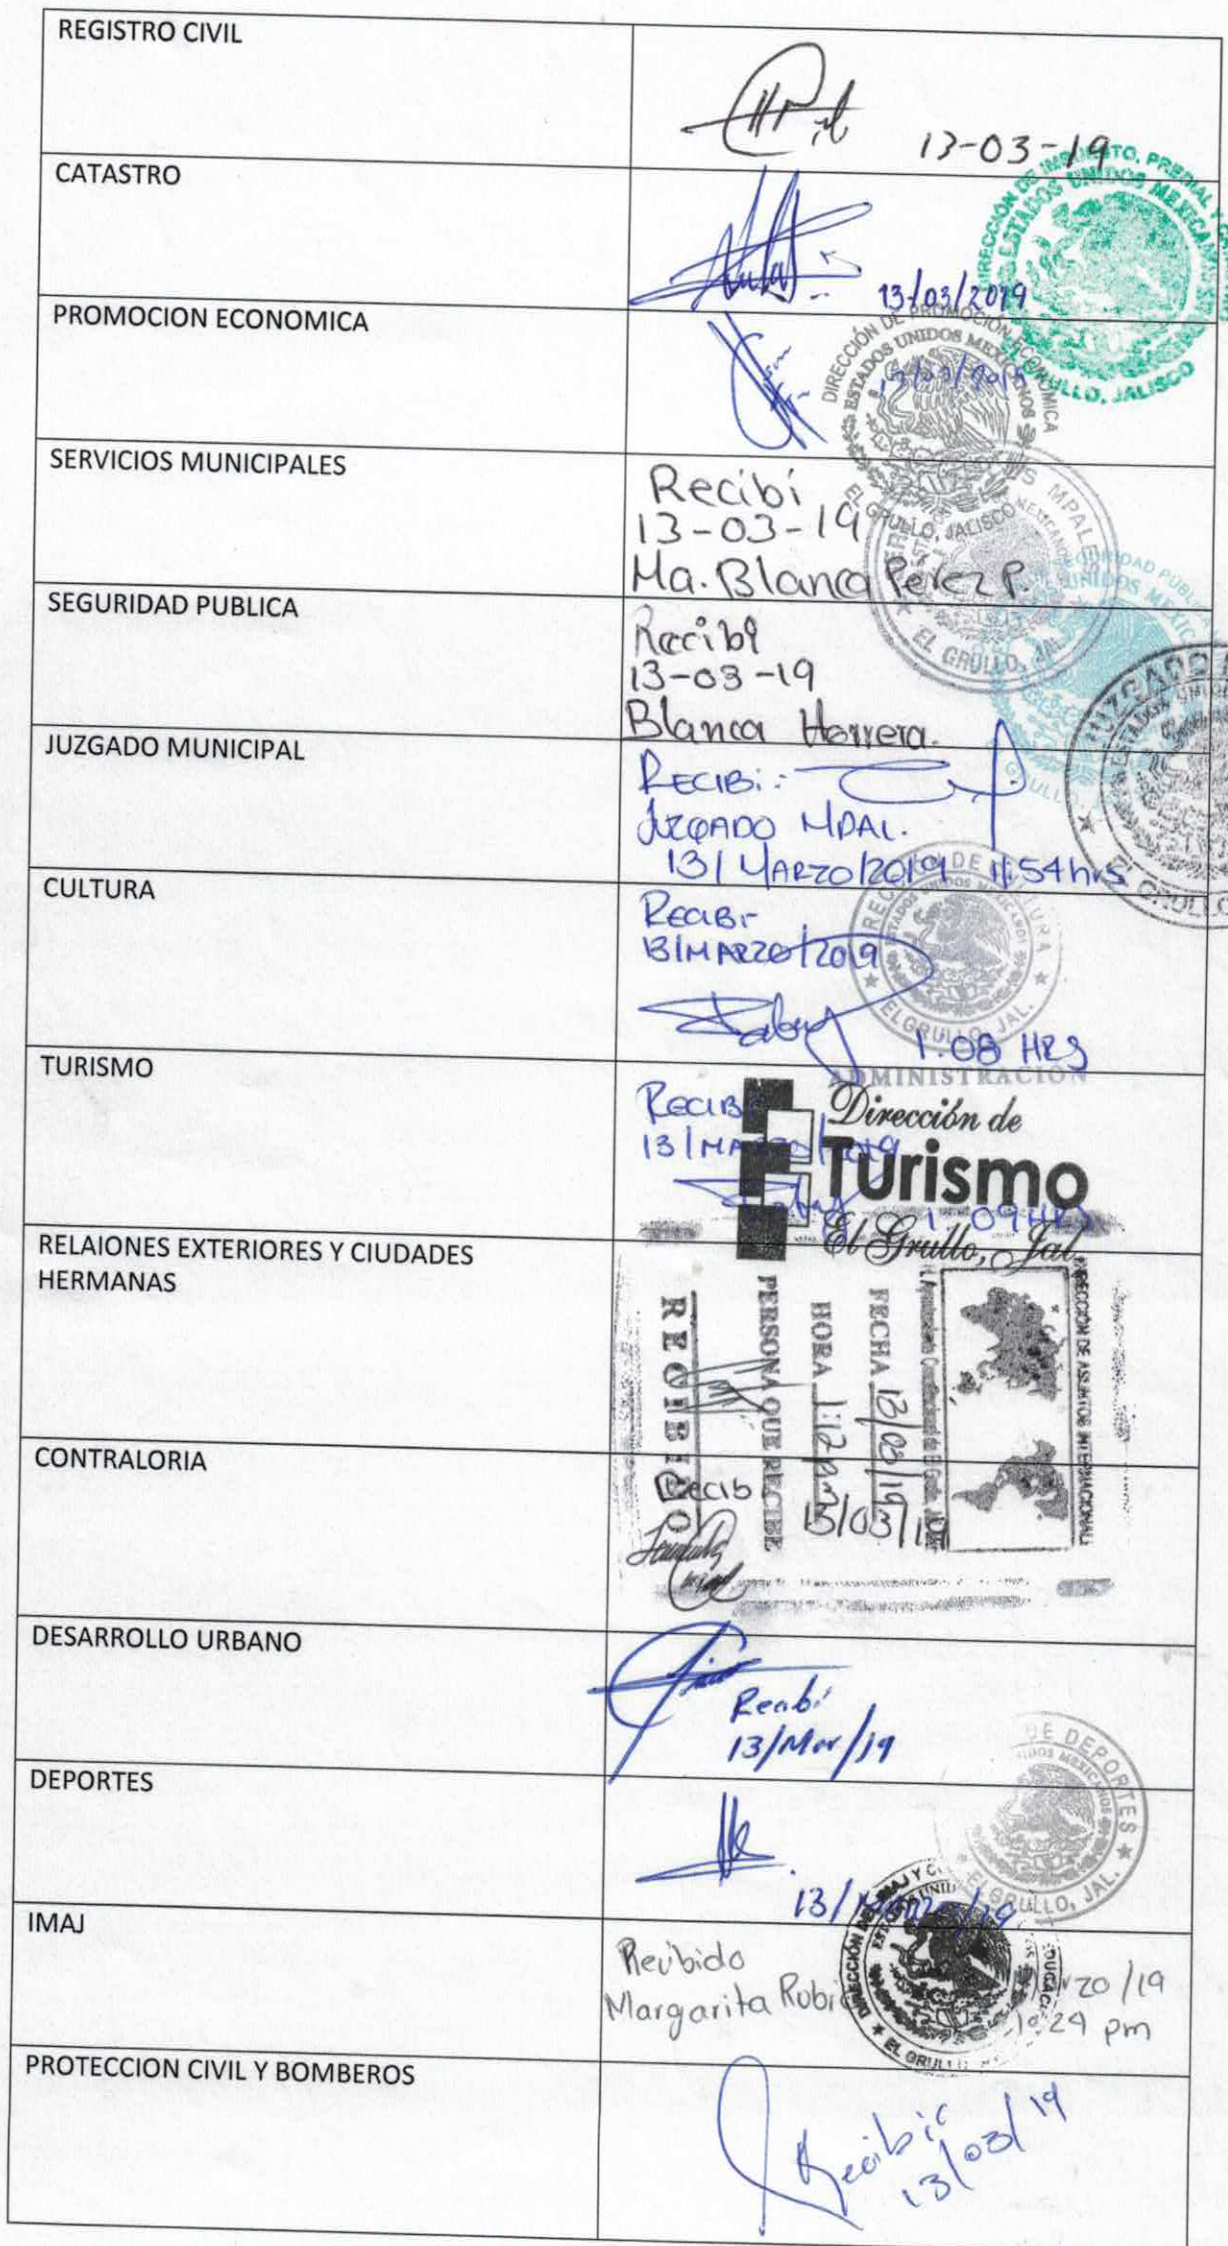 REGISTRO CIVIL
13-03-19
CATASTRO
13/03/2019
DIRECCIÓN DE IMPUESTO, PREDIAL Y
ESTADOS UNIDOS MEXICANOS
EL GRULLO, JALISCO
PROMOCION ECONOMICA
DIRECCIÓN DE PROMOCIÓN ECONÓMICA
ESTADOS UNIDOS MEXICANOS
EL GRULLO, JALISCO
SERVICIOS MUNICIPALES
Recibí
13-03-19
Ma. Blanca Perez P.
EL GRULLO, JAL.
SEGURIDAD PUBLICA
Recibí
13-03-19
Blanca Herrera.
JUZGADO MUNICIPAL
RECIBI:
JUZGADO MPAL.
13/MARZO/2019 11:54hrs
JUZGADO
CULTURA
RECIBI
13/MARZO/2019
1:08 HRS
EL GRULLO, JAL.
TURISMO
ADMINISTRACIÓN
RECIBI
13/MARZO/2019
1:09 HRS
Dirección de
Turismo
El Grullo, Jal.
RELAIONES EXTERIORES Y CIUDADES
HERMANAS
DIRECCIÓN DE ASUNTOS INTERNACIONAL
FECHA 13/03/19
HORA 1:12 pm
PERSONA QUE RECIBE
RECIBIDO
CONTRALORIA
Recib
13/03/19
DESARROLLO URBANO
Recibi
13/Mar/19
DEPORTES
13/Marzo/19
DE DEPORTES
EL GRULLO, JAL.
IMAJ
Recibido
Margarita Rubio
20/19
29 pm
PROTECCION CIVIL Y BOMBEROS
Recibic
13/03/19